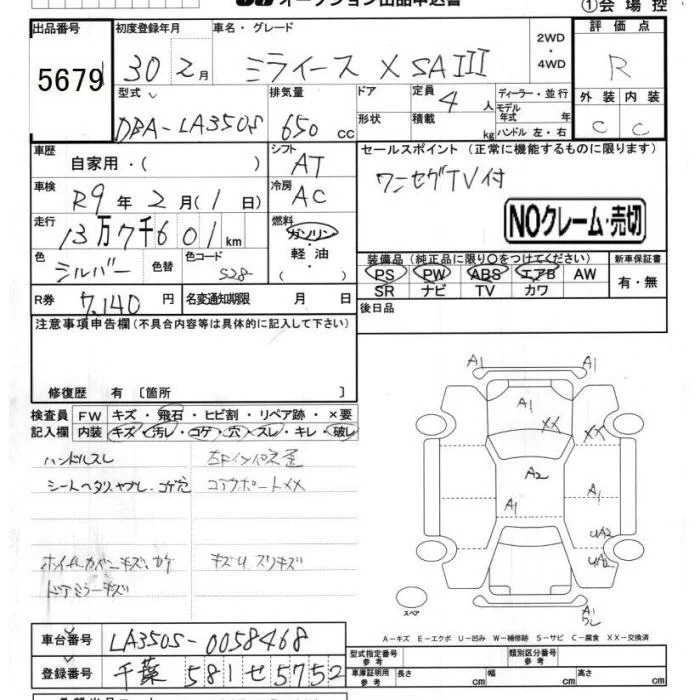 オークション出品申込書
①会場控
出品番号
5679
初度登録年月
30 2月
車名・グレード
ミライース X SAIII
2WD・4WD
評価点
R
型式
DBA-LA350S
排気量
650 cc
ドア
形状
定員
4 人
積載
kg
ディーラー・並行
モデル年式 年
ハンドル 左・右
外装
C
内装
C
車歴
自家用・( )
シフト
AT
セールスポイント (正常に機能するものに限ります)
ワンセグTV付
車検
R9年 2月 (1日)
冷房
AC
NOクレーム・売切
走行
13万7千601km
燃料
ガソリン・軽油・( )
色
シルバー
色替
色コード
S28
装備品 (純正品に限り○をつけてください)
PS PW ABS エアB AW
SR ナビ TV カワ
新車保証書
有・無
R券
7,140 円
名変通知期限 月 日
後日品
注意事項申告欄(不具合内容等は具体的に記入して下さい)
修復歴 有 〔箇所 〕
検査員記入欄
FW キズ・飛石・ヒビ割・リペア跡・×要
内装 キズ・汚レ・コゲ・穴・スレ・キレ・破レ
ハンドルスレ
シートヘタリ、ヤブレ、コゲ穴
コアサポートXX
ホイールカバーキズ、カケ
キズUスリキズ
ドアミラーキズ
A1
A1
A1
XX
XX
A2
A1
A1
UA2
UA2
A1
スペア
A-キズ E-エクボ U-凹み W-補修跡 S-サビ C-腐食 XX-交換済
車台番号
LA350S-0058468
登録番号
千葉 581 せ 5752
型式指定番号 参考
類別区分番号 参考
車庫証明用 参考
長さ cm
幅 cm
高さ cm